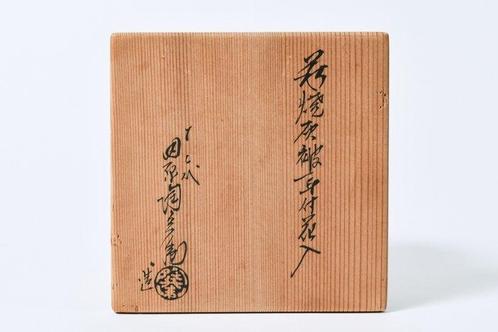 萩焼灰被耳付花入
十二代
田原陶兵衛
造